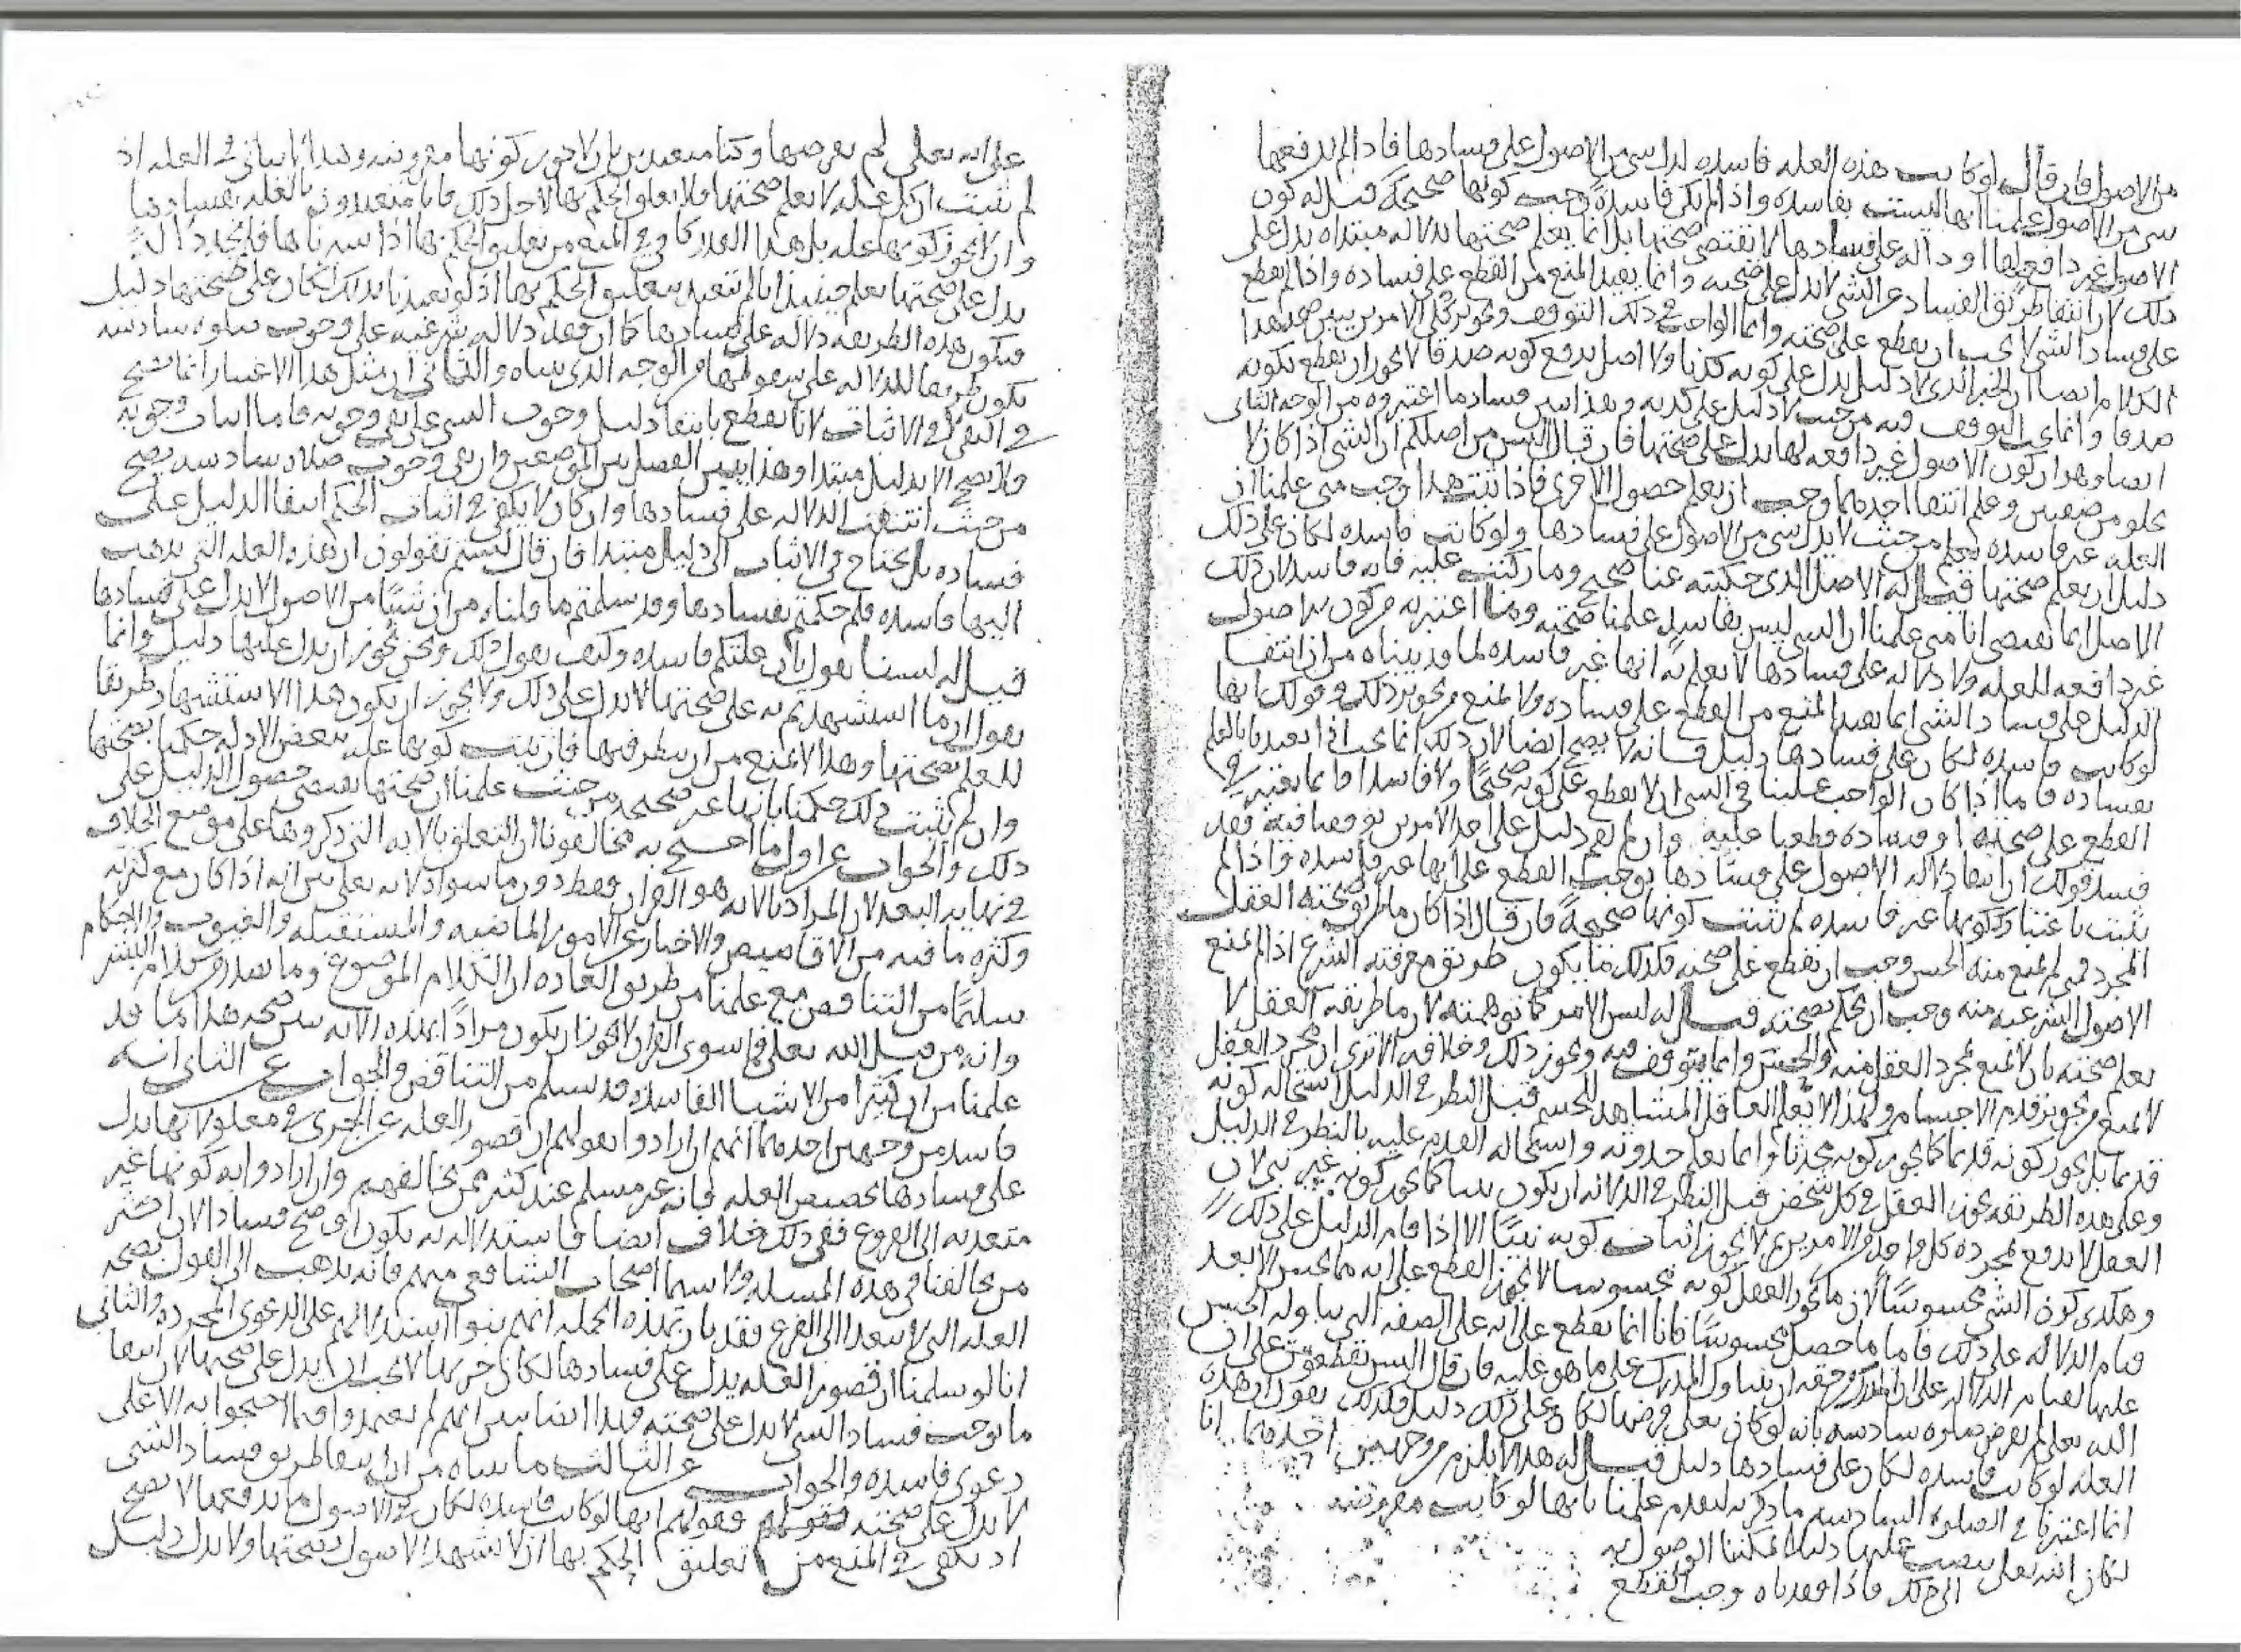 من الاصول فان قال لو كانت هذه العله فاسده لدل شى من الاصول على فسادها فاذا لم يدفعها
شى من الاصول علمنا انها ليست بفاسده واذا لم تكن فاسدةً وجب كونها صحيحة قيل له كون
الاصول غير دافعه لها او دالة على فسادها لا تقتضى صحتها بل انما يعلم صحتها بدلاله مبتداه تدل على
ذلك لان انتفا طريق الفساد عن الشى لا يدل على صحته وانما يفيد المنع من القطع على فساده واذا لم يقطع
على فساد الشى لا يجب ان يقطع على صحته وانما الواجب فى ذلك التوقف وتجويز كل الامرين يبين صحة هذا
الكلام ايضا ان الخبر الذى لا دليل يدل على كونه كذبا ولا اصل يدفع كونه صدقا لا يجوز ان يقطع بكونه
صدقا وانما يجب التوقف فيه من حيث لا دليل على كذبه وبهذا يبين فساد ما اعتبروه من الوجه الثانى
ايضا وهو ان كون الاصول غير دافعه لها يدل على صحتها فان قال اليس من اصلكم ان الشى اذا كان لا
يخلو من صفتين وعلم انتفا احدهما وجب ان يعلم حصول الاخرى فاذا ثبت هذا وجب متى علمنا ان
العله غير فاسده يعلم من حيث لا يدل شى من الاصول على فسادها ولو كانت فاسده لكان على ذلك
دليل ان يعلم صحتها قيل له الاصل الذى حكيته عنا صحيح وما ركبت عليه فانه فاسد لان ذلك
الاصل انما يقتضى انا متى علمنا ان الشى ليس بفاسد علمنا صحته وما اعتبرته من كون الاصول
غير دافعه للعله ولا دلاله على فسادها لا يعلم به انها غير فاسده لما قد بيناه من ان انتفا
الدليل على فساد الشى انما يفيد المنع من القطع على فساده ولا يمنع من تجويز ذلك وقولك انها
لو كانت فاسده لكان على فسادها دليل فانه لا يصح ايضا لان ذلك انما يجب اذا تعبدنا بالعلم
بفساده فاما اذا كان الواجب علينا فى الشى ان لا يقطع على كونه صحيحًا ولا فاسدا فانما يعتبر فى
القطع على صحته او فساده قطعنا عليه وان لم نجد دليل على احد الامرين توقفنا فيه فقد
فسد قولك ان انتفا دلاله الاصول على فسادها يوجب القطع على انها غير فاسده واذا لم
يثبت باعتبارك كونها غير فاسده لم تثبت كونها صحيحةً فان قال اذا كان ما طريق صحته العقل
المجرد متى لم يمنع منه الحس وجب ان يقطع على صحته فكذلك ما يكون طريق معرفته الشرع اذا لم يمنع
الاصول الشرعيه منه وجب ان يحكم بصحته قيل له ليس الامر كما توهمته لان ما طريقه العقل لا
يعلم صحته بان لا يمنع مجرد العقل منه والحس وانما يتوقف فيه ويجوز ذلك وخلافه الا ترى ان مجرد العقل
لا يمنع من تجويز قدم الاجسام ولهذا لا يعلم العاقل المشاهد للجسم قبل النظر فى الدليل استحاله كونه
قديما بل يجوز كونه قديما كما يجوز كونه محدثا وانما يعلم حدوثه واستحاله القدم عليه بالنظر فى الدليل
وعلى هذه الطريقه يجوز العقل فى كل شخص قبل النظر فى الدلاله ان يكون نبيا كما يجوز كونه غير نبى لان
العقل لا يدفع بمجرده كل واحد من الامرين ثم لا يجوز اثبات كونه نبيًا الا اذا قام الدليل على ذلك
وهكذى كون الشى محسوسًا لان ما يجوز العقل كونه محسوسا لا يجوز القطع على انه مما يحس الا بعد
قيام الدلاله على ذلك فاما ما حصل محسوسًا فانا انما نقطع على انه على الصفه التى يتناوله الحس
عليها لقيام الدلاله على ان المدرك من حقه ان يتناول المدرك على ما هو عليه فان قال اليس تقطعون على ان
الله تعلى لم يفرض صلوه سادسه بانه لو كان تعلى فرضها لكان على ذلك دليل فكذلك يقول ان هذه
العله لو كانت فاسده لكان على فسادها دليل قيل له هذا لا يلزم من وجهين احدهما انا
انما اعتبرنا فى الصلوه السادسه ما ذكرته لتقدم علمنا بانها لو كانت مفروضه
لكان الله تعلى ينصب عليها دليلا يمكننا الوصول به
الى ذلك فاذا فقدناه وجب القطع
على انه تعلى لم يفرضها وكنا متعبدين بان لا نجوز كونها مفروضه وهذا لا يتاتى فى العله اذ
لم يثبت ان كل عله لا يعلم صحتها فلا يعلق الحكم بها لاجل ذلك فانا متعبدون بالعلم بفسادها
وان لا نجوز كونها عله بل هذا القدر كاف فى المنع من تعليق الحكم بها اذا سبرناها فلم نجد دلالةً
تدل على صحتها يعلم حينئذ انا لم نتعبد بتعليق الحكم بها اذ لو تعبدنا بذلك لكان على صحتها دليل
فيكون هذه الطريقه دلاله على فسادها كما ان فقد دلاله شرعيه على وجوب صلوه سادسه
يكون طريقا للدلاله على سقوطها من الوجه الذى بيناه والثانى ان مثل هذا الاعتبار انما يصح
فى النفى لا فى الاثبات لانا نقطع بانتفا دليل وجوب الشى على نفى وجوبه فاما اثبات وجوبه
فلا يصح الا بدليل مبتدا وهذا يبين الفصل بين الموضعين وان نفى وجوب صلاه سادسه يصح
من حيث انتفت الدلاله على فسادها وان كان لا يكفى فى اثبات الحكم انتفا الدليل على
فساده بل يحتاج فى الاثبات الى دليل مبتدا فان قال الستم تقولون ان هذه العله التى نذهب
اليها فاسده فلم حكمتم بفسادها وقد سلمتم ما قلناه من ان شيئًا من الاصول لا يدل على فسادها
قيل له لسنا نقول بان علتكم فاسده وكيف نقول ذلك ونحن نجوز ان يدل عليها دليل وانما
نقول ان ما استشهدتم به على صحتها لا يدل على ذلك ولا يجوز ان يكون هذا الاستشهاد طريقا
للعلم بصحتها وهذا لا يمنع من ان ينظر فيها فان ثبت كونها عله ببعض الادله حكمنا بصحتها
وان لم يثبت ذلك حكمنا بانها غير صحيحه من حيث علمنا ان صحتها يقتضى حصول الدليل على
ذلك والجواب عن اول ما احتج به مخالفونا ان التعلق بالايه التى ذكروها على موضع الخلاف
فى نهايه البعد لان المراد بالايه هو القران فقط دون ما سواه لانه تعلى بين انه اذا كان مع كثرته
وكثره ما فيه من الاقاصيص والاخبار عن الامور الماضيه والمستقبله والغيوب والاحكام
سليمًا من التناقض مع علمنا من طريق العاده ان الكلام الموضوع وما يصدر من كلام البشر
وانه من قبل الله تعلى فما سوى القران لا يجوز ان يكون مرادًا بهذه الايه يبين صحه هذا ما قد
علمنا من ان كثيرًا من الاشيا الفاسده قد يسلم من التناقض والجواب عن الثانى انه
فاسد من وجهين احدهما انهم ان ارادوا بقولهم ان قصور العله عن الجرى فى معلولاتها يدل
على فسادها تخصيص العله فانه غير مسلم عند كثير ممن يخالفهم وان ارادوا به كونها غير
متعديه الى الفروع ففى ذلك خلاف ايضا فاستدلاله به يكون اوضح فسادا لان اكثر
من خالفنا فى هذه المسله ولا سيما اصحاب الشافعى منهم فانه يذهب الى القول بصحه
العله التى لا تتعدا الى الفرع فقد بان بهذه الجمله انهم بنوا استدلالهم على الدعوى المجرده والثانى
انا لو سلمنا ان قصور العله يدل على فسادها لكان جريها لا يجب ان يدل على صحتها لان انتفا
ما يوجب فساد الشى لا يدل على صحته فهذا ايضا يبين انهم لم يعتمدوا فيما احتجوا به الا على
دعوى فاسده والجواب عن الثالث ما بيناه من ان انتفا طريق فساد الشى
لا يدل على صحته فقولهم انها لو كانت فاسده لكان فى الاصول ما يدفعها لا يصح
اذ يكفى فى المنع من تعليق الحكم بها ان لا تشهد الاصول بصحتها ولا يدل دليل